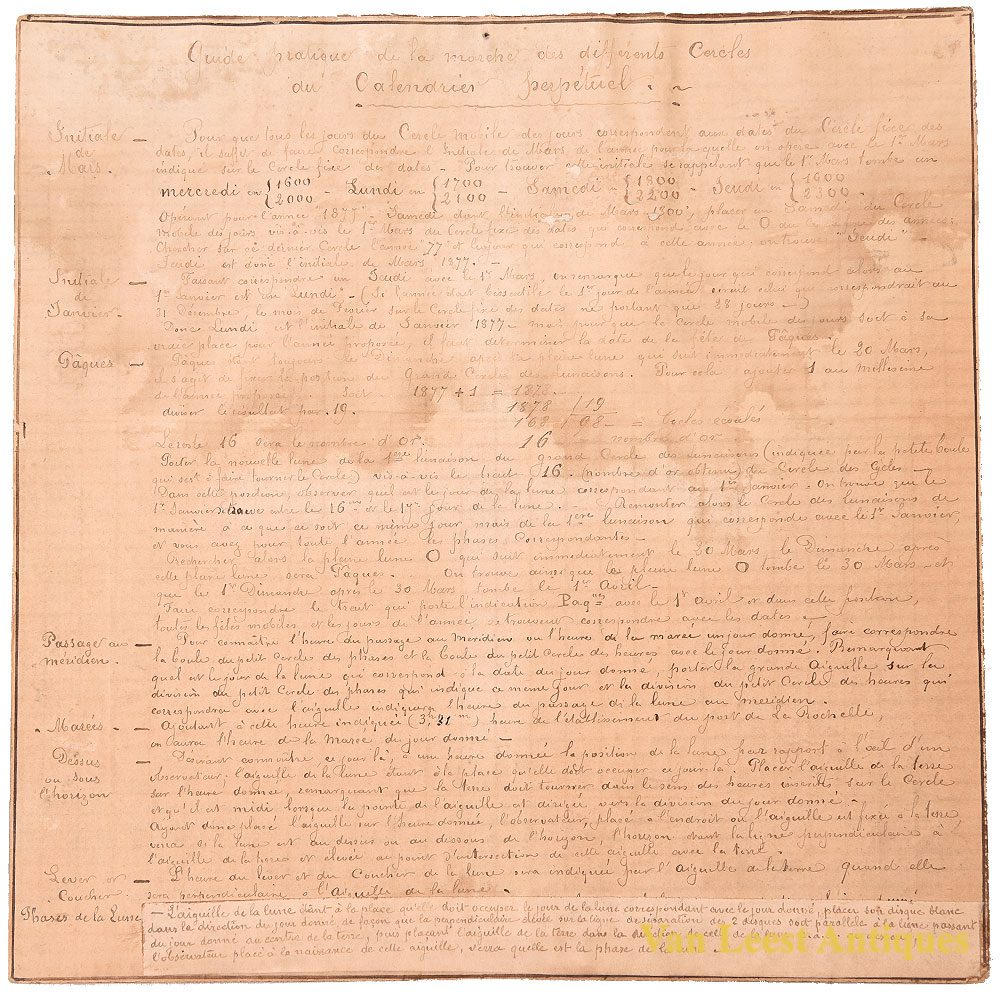 Guide pratique de la marche des différents Cercles
du Calendrier perpétuel.
Initiale de Mars. — Pour que tous les jours du Cercle mobile des jours correspondent aux dates du Cercle fixe des
dates, il suffit de faire correspondre l'Initiale de Mars de l'année pour laquelle on opère avec le 1er Mars
indiqué sur le Cercle fixe des dates — Pour trouver cette initiale se rappelant que le 1er Mars tombe un
mercredi en { 1600 2000 - Lundi en { 1700 2100 - Samedi - { 1800 2200 - Jeudi en { 1900 2300 -
Opérant pour l'année "1877" Samedi étant l'initiale de Mars 1800, placer un Samedi du Cercle
mobile des jours vis-à-vis le 1er Mars du Cercle fixe des dates qui correspond avec le 0 du des années.
Chercher sur ce dernier Cercle l'année "77" et le jour qui correspond à cette année; on trouve "Jeudi" —
Jeudi est donc l'initiale de Mars 1877. —
Initiale de Janvier. — Faisant correspondre un Jeudi avec le 1er Mars, on remarque que le jour qui correspond alors au
1er Janvier est un Lundi. - (Si l'année était bissextile le 1er jour de l'année serait celui qui correspondrait au
31 Décembre, le mois de Février sur le Cercle fixe des dates ne portant que 28 jours —)
Donc Lundi est l'initiale de Janvier 1877 - mais pour que le Cercle mobile des jours soit à sa
vraie place pour l'année proposée, il faut déterminer la date de la fête de Pâques.
Pâques — Pâques étant toujours le Dimanche après la pleine lune qui suit immédiatement le 20 Mars,
il s'agit de fixer la position du Grand Cercle des lunaisons. Pour cela ajouter 1 au millésime
de l'année proposée. Soit 1877 + 1 = 1878
diviser le résultat par 19. 1878 | 19
168 | 98 - = Cycles écoulés
Le reste 16 sera le nombre d'or. 16 - nombre d'or
Porter la nouvelle lune de la 1ère lunaison du grand Cercle des lunaisons (indiquée par la petite boule
qui sert à faire tourner le Cercle) vis-à-vis le trait 16 (nombre d'or obtenu) du Cercle des Cycles —
Dans cette position, observer quel est le jour de la lune correspondant au 1er Janvier. On trouve que le
1er Janvier se trouve entre le 16me et le 17me jour de la lune. — Remonter alors le Cercle des lunaisons de
manière à ce que ce soit ce même jour mais de la 1ère lunaison qui corresponde avec le 1er Janvier,
et vous avez pour toute l'année les phases Correspondantes —
Chercher alors la pleine lune O qui suit immédiatement le 20 Mars, le Dimanche après
cette pleine lune sera Pâques. . . On trouve ainsi que la pleine lune O tombe le 30 Mars - et
que le 1er Dimanche après le 30 Mars tombe le 1er Avril —
Faire correspondre le trait qui porte l'indication Paques avec le 1er avril et dans cette position,
toutes les fêtes mobiles et les jours de l'année, se trouvent correspondre avec les dates. —
Passage au méridien. — Pour connaître l'heure du passage au Méridien ou l'heure de la marée un jour donné, faire correspondre
la boule du petit Cercle des phases et la boule du petit Cercle des heures avec le jour donné. Remarquant
quel est le jour de la lune qui correspond à la date du jour donné, porter la grande Aiguille sur la
division du petit Cercle des phases qui indique ce même jour et la division du petit Cercle des heures qui
correspondra avec l'aiguille indiquera l'heure du passage de la lune au méridien.
Marées — Ajoutant à cette heure indiquée (3h 31m) heure de l'établissement du port de La Rochelle,
on aura l'heure de la Marée du jour donné —
Dessus ou sous l'horizon — Désirant connaître, ce jour là, à une heure donnée la position de la lune par rapport à l'œil d'un
observateur. l'aiguille de la lune étant à la place qu'elle doit occuper ce jour-là. Placer l'aiguille de la terre
sur l'heure donnée, remarquant que la terre doit tourner dans le sens des heures inscrites sur le Cercle
et qu'il est midi lorsque la pointe de l'aiguille est dirigée vers la division du jour donné. —
Ayant donc placé l'aiguille sur l'heure donnée, l'observateur, placé à l'endroit où l'aiguille est fixée à la terre,
verra si la lune est au dessus ou au dessous de l'horizon, l'horizon étant la ligne perpendiculaire à
l'aiguille de la terre et élevée au point d'intersection de cette aiguille avec la terre.
Lever et Coucher — L'heure du lever et du Coucher de la lune sera indiquée par l'Aiguille de la terre quand elle
sera perpendiculaire à l'Aiguille de la lune.
Phases de la Lune — L'aiguille de la lune étant à la place qu'elle doit occuper le jour de la lune correspondant avec le jour donné, placer son disque blanc
dans la direction du jour donné de façon que la perpendiculaire élevée sur la ligne de séparation des 2 disques soit parallèle à la ligne passant
du jour donné au centre de la terre, puis plaçant l'aiguille de la terre dans la direction de celle de la lune
l'observateur placé à la naissance de cette aiguille, verra quelle est la phase de la
Van Leest Antiques